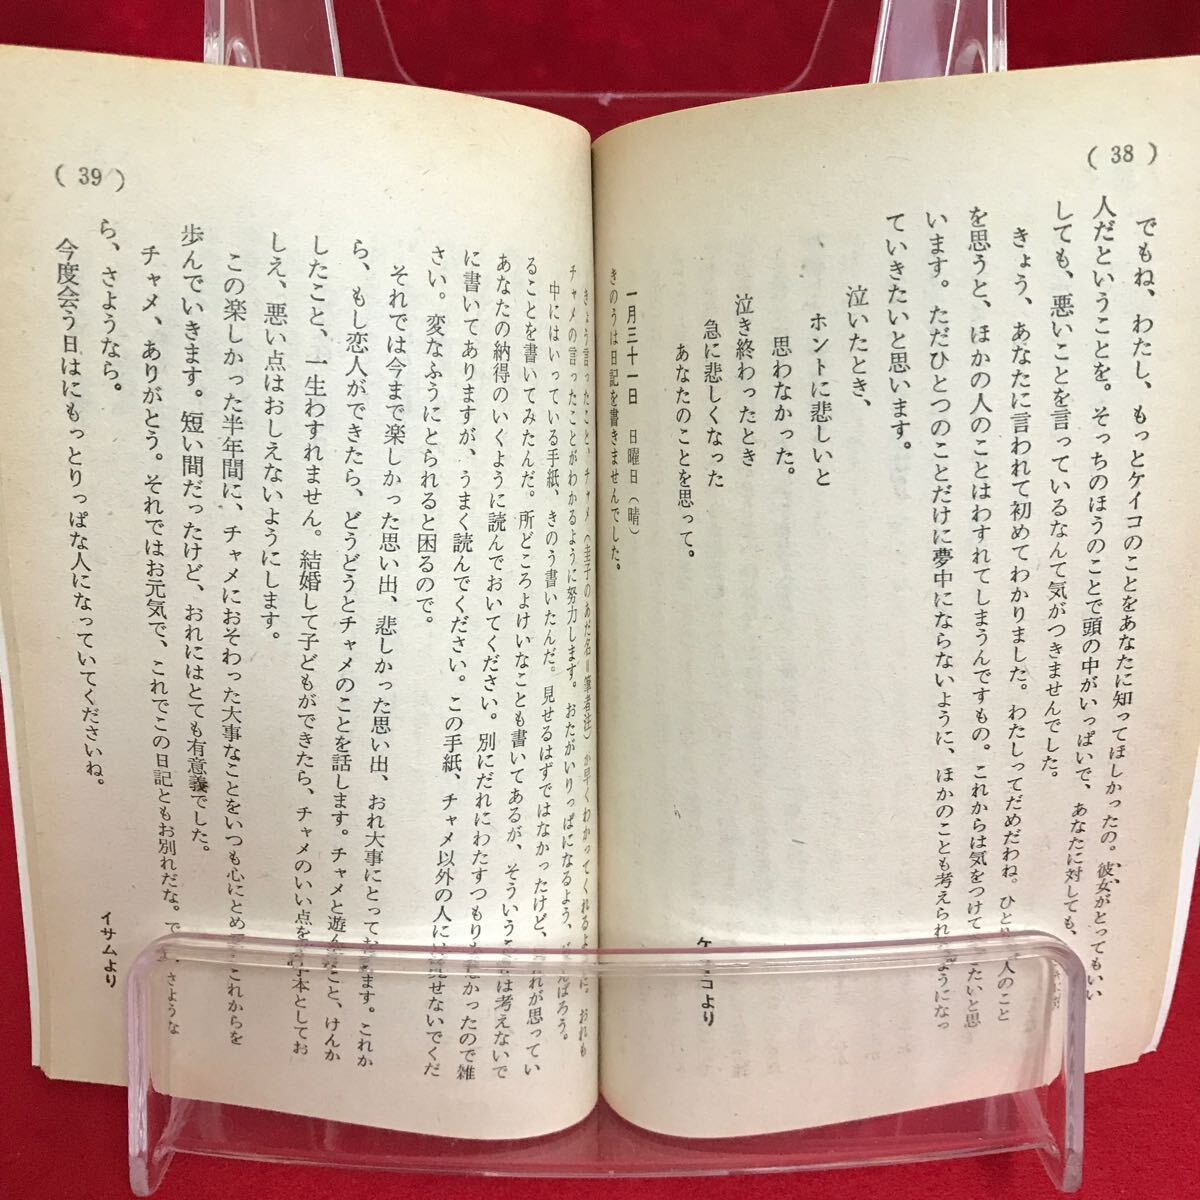 ( 38 )
でもね、わたし、もっとケイコのことをあなたに知ってほしかったの。彼女がとってもいい
人だということを。そっちのほうのことで頭の中がいっぱいで、あなたに対しても、
しても、悪いことを言っているなんて気がつきませんでした。
きょう、あなたに言われて初めてわかりました。わたしってだめだわね。ひとりの人のこと
を思うと、ほかの人のことはわすれてしまうんですもの。これからは気をつけていきたいと思
います。ただひとつのことだけに夢中にならないように、ほかのことも考えられるようになっ
ていきたいと思います。
泣いたとき、
ホントに悲しいと
思わなかった。
泣き終わったとき
急に悲しくなった
あなたのことを思って。
ケイコより
一月三十一日 日曜日(晴)
きのうは日記を書きませんでした。
( 39 )
きょう言ったこと、チャメ(圭子のあだ名=筆者注)が早くわかってくれるように。おれも
チャメの言ったことがわかるように努力します。おたがいりっぱになるよう、がんばろう。
中にはいっている手紙、きのう書いたんだ。見せるはずではなかったけど、おれが思ってい
ることを書いてみたんだ。所どころよけいなことも書いてあるが、そういうことは考えないで
あなたの納得のいくように読んでおいてください。別にだれにわたすつもりもなかったので雑
に書いてありますが、うまく読んでください。この手紙、チャメ以外の人には見せないでくだ
さい。変なふうにとられると困るので。
それでは今まで楽しかった思い出、悲しかった思い出、おれ大事にとっておきます。これか
ら、もし恋人ができたら、どうどうとチャメのことを話します。チャメと遊んだこと、けんか
したこと、一生わすれません。結婚して子どもができたら、チャメのいい点をお手本としてお
しえ、悪い点はおしえないようにします。
この楽しかった半年間に、チャメにおそわった大事なことをいつも心にとめて、これからを
歩んでいきます。短い間だったけど、おれにはとても有意義でした。
チャメ、ありがとう。それではお元気で、これでこの日記ともお別れだな。では、さような
ら、さようなら。
今度会う日はにもっとりっぱな人になっていてくださいね。
イサムより